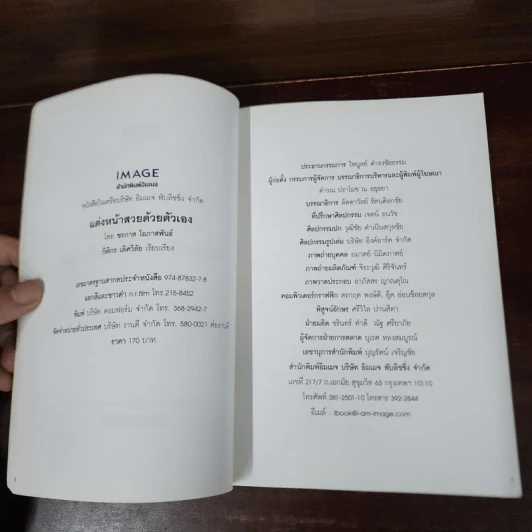 IMAGE
สำนักพิมพ์อิมเมจ
หนังสือในเครือบริษัท อิมเมจ พับลิชชิ่ง จำกัด
แต่งหน้าสวยด้วยตัวเอง
โดย ขรภาส โอภาสพันธ์
กิติกร เลิศวิลัย เรียบเรียง
เลขมาตรฐานสากลประจำหนังสือ 974-87832-7-8
แยกสีและขาวดำ n.r.film โทร.215-8452
พิมพ์ บริษัท คอมฟอร์ม จำกัด โทร. 368-2942-7
จัดจำหน่ายทั่วประเทศ บริษัท งานดี จำกัด โทร. 580-0021 ต่องานดี
ราคา 170 บาท
ประธานกรรมการ ไพบูลย์ ดำรงชัยธรรม
ผู้ก่อตั้ง กรรมการผู้จัดการ บรรณาธิการบริหารและผู้พิมพ์ผู้โฆษณา
ดำรณ ปราโมช ณ อยุธยา
บรรณาธิการ
ที่ปรึกษาศิลปกรรม เจตน์
ศิลปกรรมปก วุฒิชัย
ศิลปกรรมรูปเล่ม บริษัท อิงค์อาร์ต จำกัด
ภาพถ่ายบุคคล ธมาตย์ นิมิตภาคย์
ภาพถ่ายผลิตภัณฑ์ จิระวุฒิ ศิริจันทร์
ภาพวาดประกอบ
คอมพิวเตอร์กราฟฟิก
พิสูจน์อักษร ศรีวิไล ปานสีทา
ฝ่ายผลิต ชรินทร์
ผู้จัดการฝ่ายการตลาด นุเรศ หลงสมบูรณ์
เลขานุการสำนักพิมพ์ บุญรัตน์ เจริญชัย
สำนักพิมพ์อิมเมจ บริษัท อิมเมจ พับลิชชิ่ง จำกัด
เลขที่ 217/7 ถ.เอกมัย สุขุมวิท 63 กรุงเทพฯ 10110
โทรศัพท์ 381-2501-10 โทรสาร 392-2844
อีเมล์ : ibook@i-am-image.com